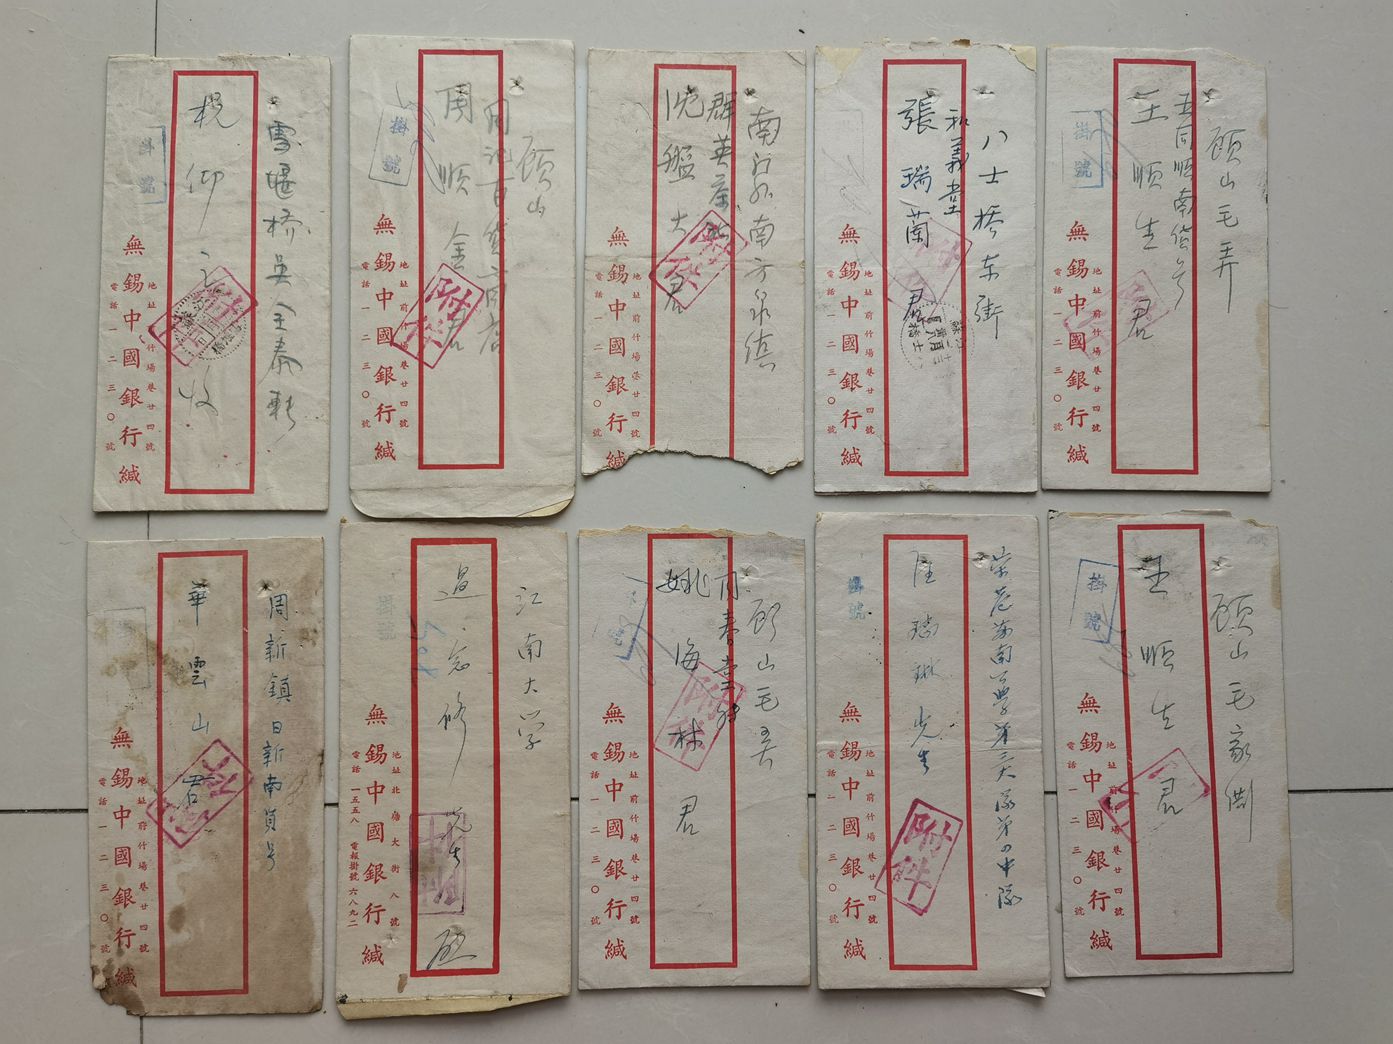 雪堰橋吳全泰轉
楊仰之收
掛號
無錫中國銀行緘
地址前竹場巷廿四號
電話一二三〇號
顾山
周順金君
掛號
附科
無錫中國銀行緘
地址前竹場巷廿四號
電話一二三〇號
南方泉鎮
沈盤大君
無錫中國銀行緘
地址前竹場巷廿四號
電話一二三〇號
八士橋东街
和義堂
張瑞蘭君
無錫中國銀行緘
地址前竹場巷廿四號
電話一二三〇號
顾山毛弄
五同順南貨号
王順生君
掛號
無錫中國銀行緘
地址前竹場巷廿四號
電話一二三〇號
周新鎮日新南貨号
華雲山君
無錫中國銀行緘
地址前竹場巷廿四號
電話一二三〇號
江南大学
過念修先生啟
掛號
無錫中國銀行緘
地址北塘大街八號
電話一五五八
電報掛號六八九二
顾山毛弄
周春堂轉
姚海林君
附科
無錫中國銀行緘
地址前竹場巷廿四號
電話一二三〇號
榮巷蘇南公學第三大隊第四中隊
陸瑞琳先生
掛號
附科
無錫中國銀行緘
地址前竹場巷廿四號
電話一二三〇號
顾山毛家衖
王順生君
掛號
無錫中國銀行緘
地址前竹場巷廿四號
電話一二三〇號